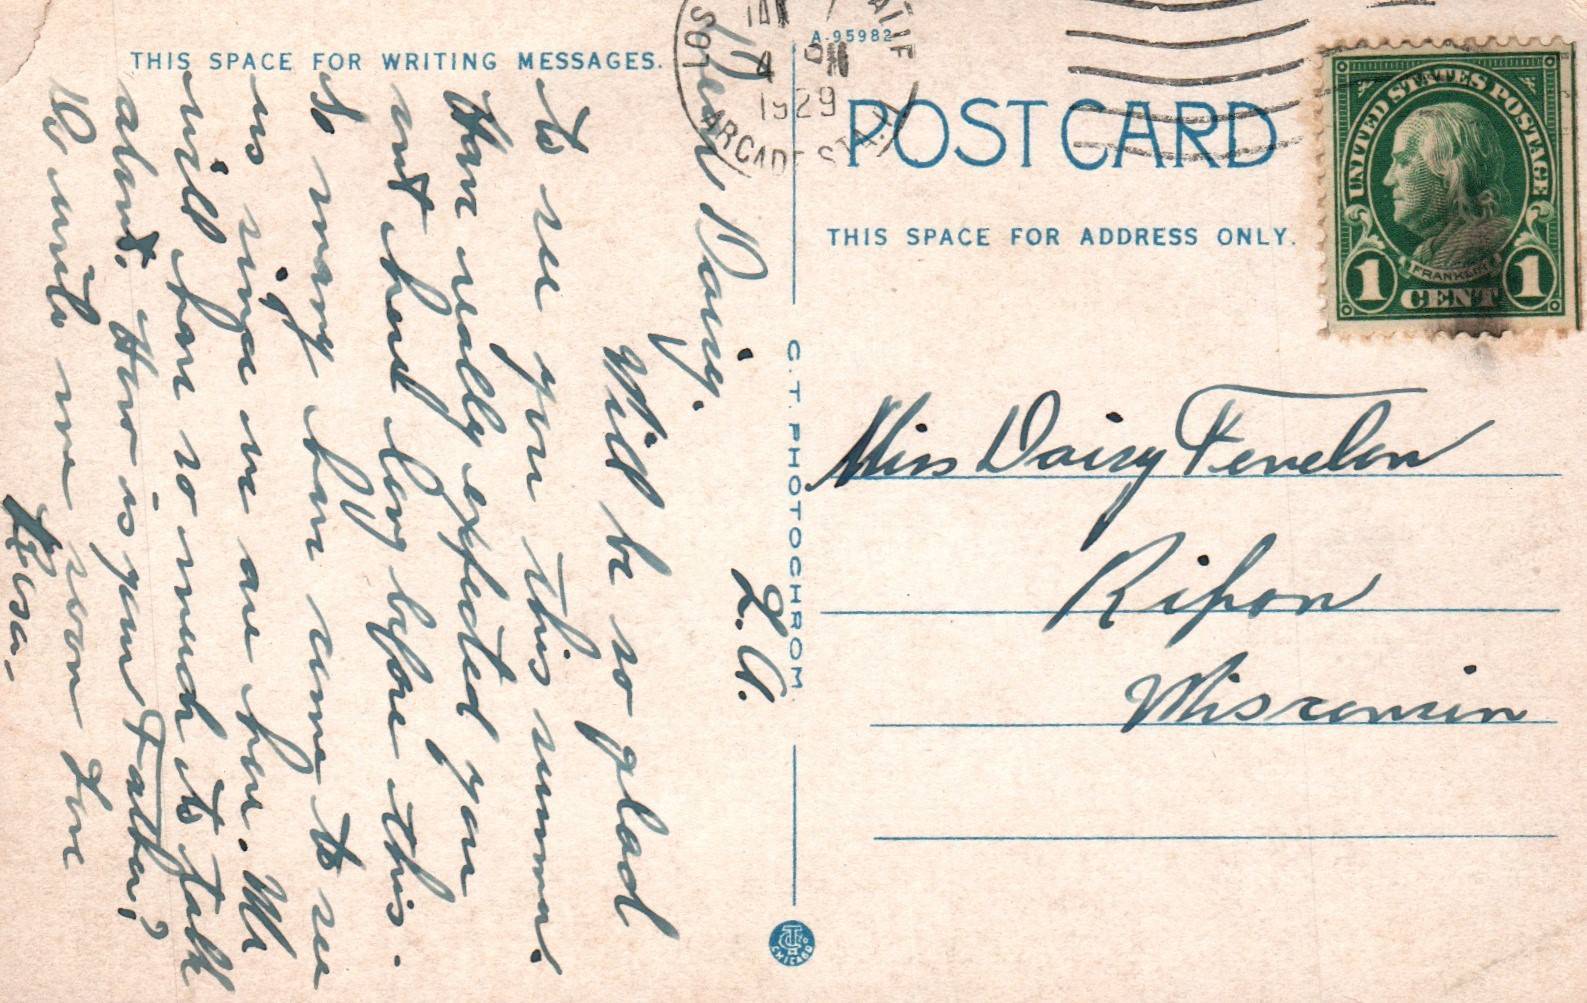 THIS SPACE FOR WRITING MESSAGES.
A-95982
POST CARD
THIS SPACE FOR ADDRESS ONLY.
LOS
4 PM
1929
ARCADE STA.
UNITED STATES POSTAGE
FRANKLIN
1 CENT 1
C. T. PHOTOCHROM
CHICAGO
L.A.
Dear Daisy.
Will be so glad
to see you this summer.
Have really expected you
out here long before this.
So many have come to see
us since we are here. We
will have so much to talk
about. How is your Father?
Do write me soon Love
Rosa.
Miss Daisy Fenelon
Ripon
Wisconsin